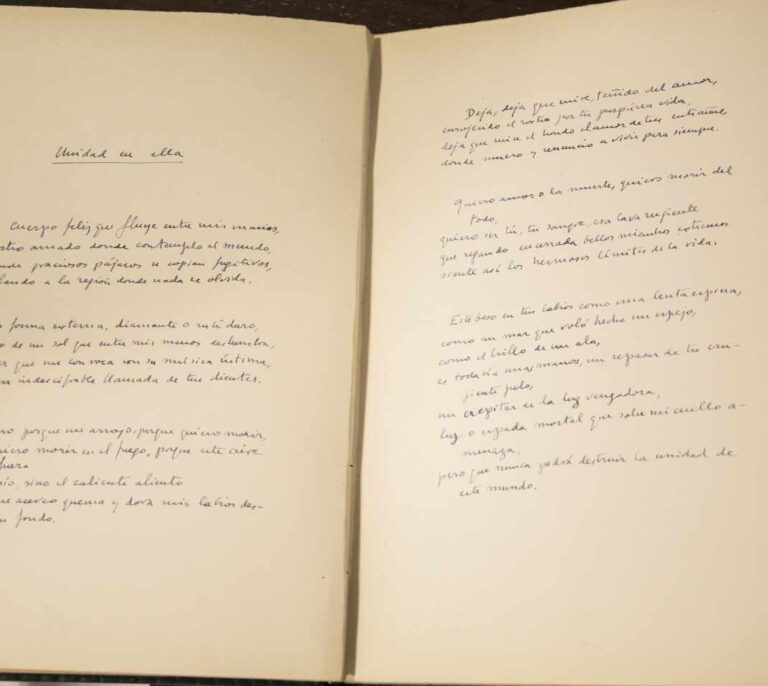 Unidad en ella
Cuerpo feliz que fluye entre mis manos,
ostro amado donde contemplo el mundo,
nde graciosos pájaros se copian fugitivos,
lando a la región donde nada se olvida.
forma externa, diamante o rubí duro,
o de un sol que entre mis manos deslumbra,
er que me convoca con su música íntima,
indescifrable llamada de tus dientes.
ro porque me arrojo, porque quiero morir,
iero morir en el fuego, porque este aire
fuera
mío, sino el caliente aliento
e acerco quema y dora mis labios des-
n fondo.
Deja, deja que mire, teñido del amor,
enrojecido el rostro por tu purpúrea vida,
deja que mire el hondo clamor de tus entrañas,
donde muero y renuncio a vivir para siempre.
Quiero amor o la muerte, quiero morir del
todo,
quiero ser tú, tu sangre, esa lava rugiente
que regando encerrada bellos miembros extremos
siente así los hermosos límites de la vida.
Este beso en tus labios como una lenta espina,
como un mar que voló hecho un espejo,
como el brillo de un ala,
es todavía unas manos, un repasar de tu cru-
jiente pelo,
un crepitar de la luz vengadora,
luz o espada mortal que sobre mi cuello a-
menaza,
pero que nunca podrá destruir la unidad de
este mundo.